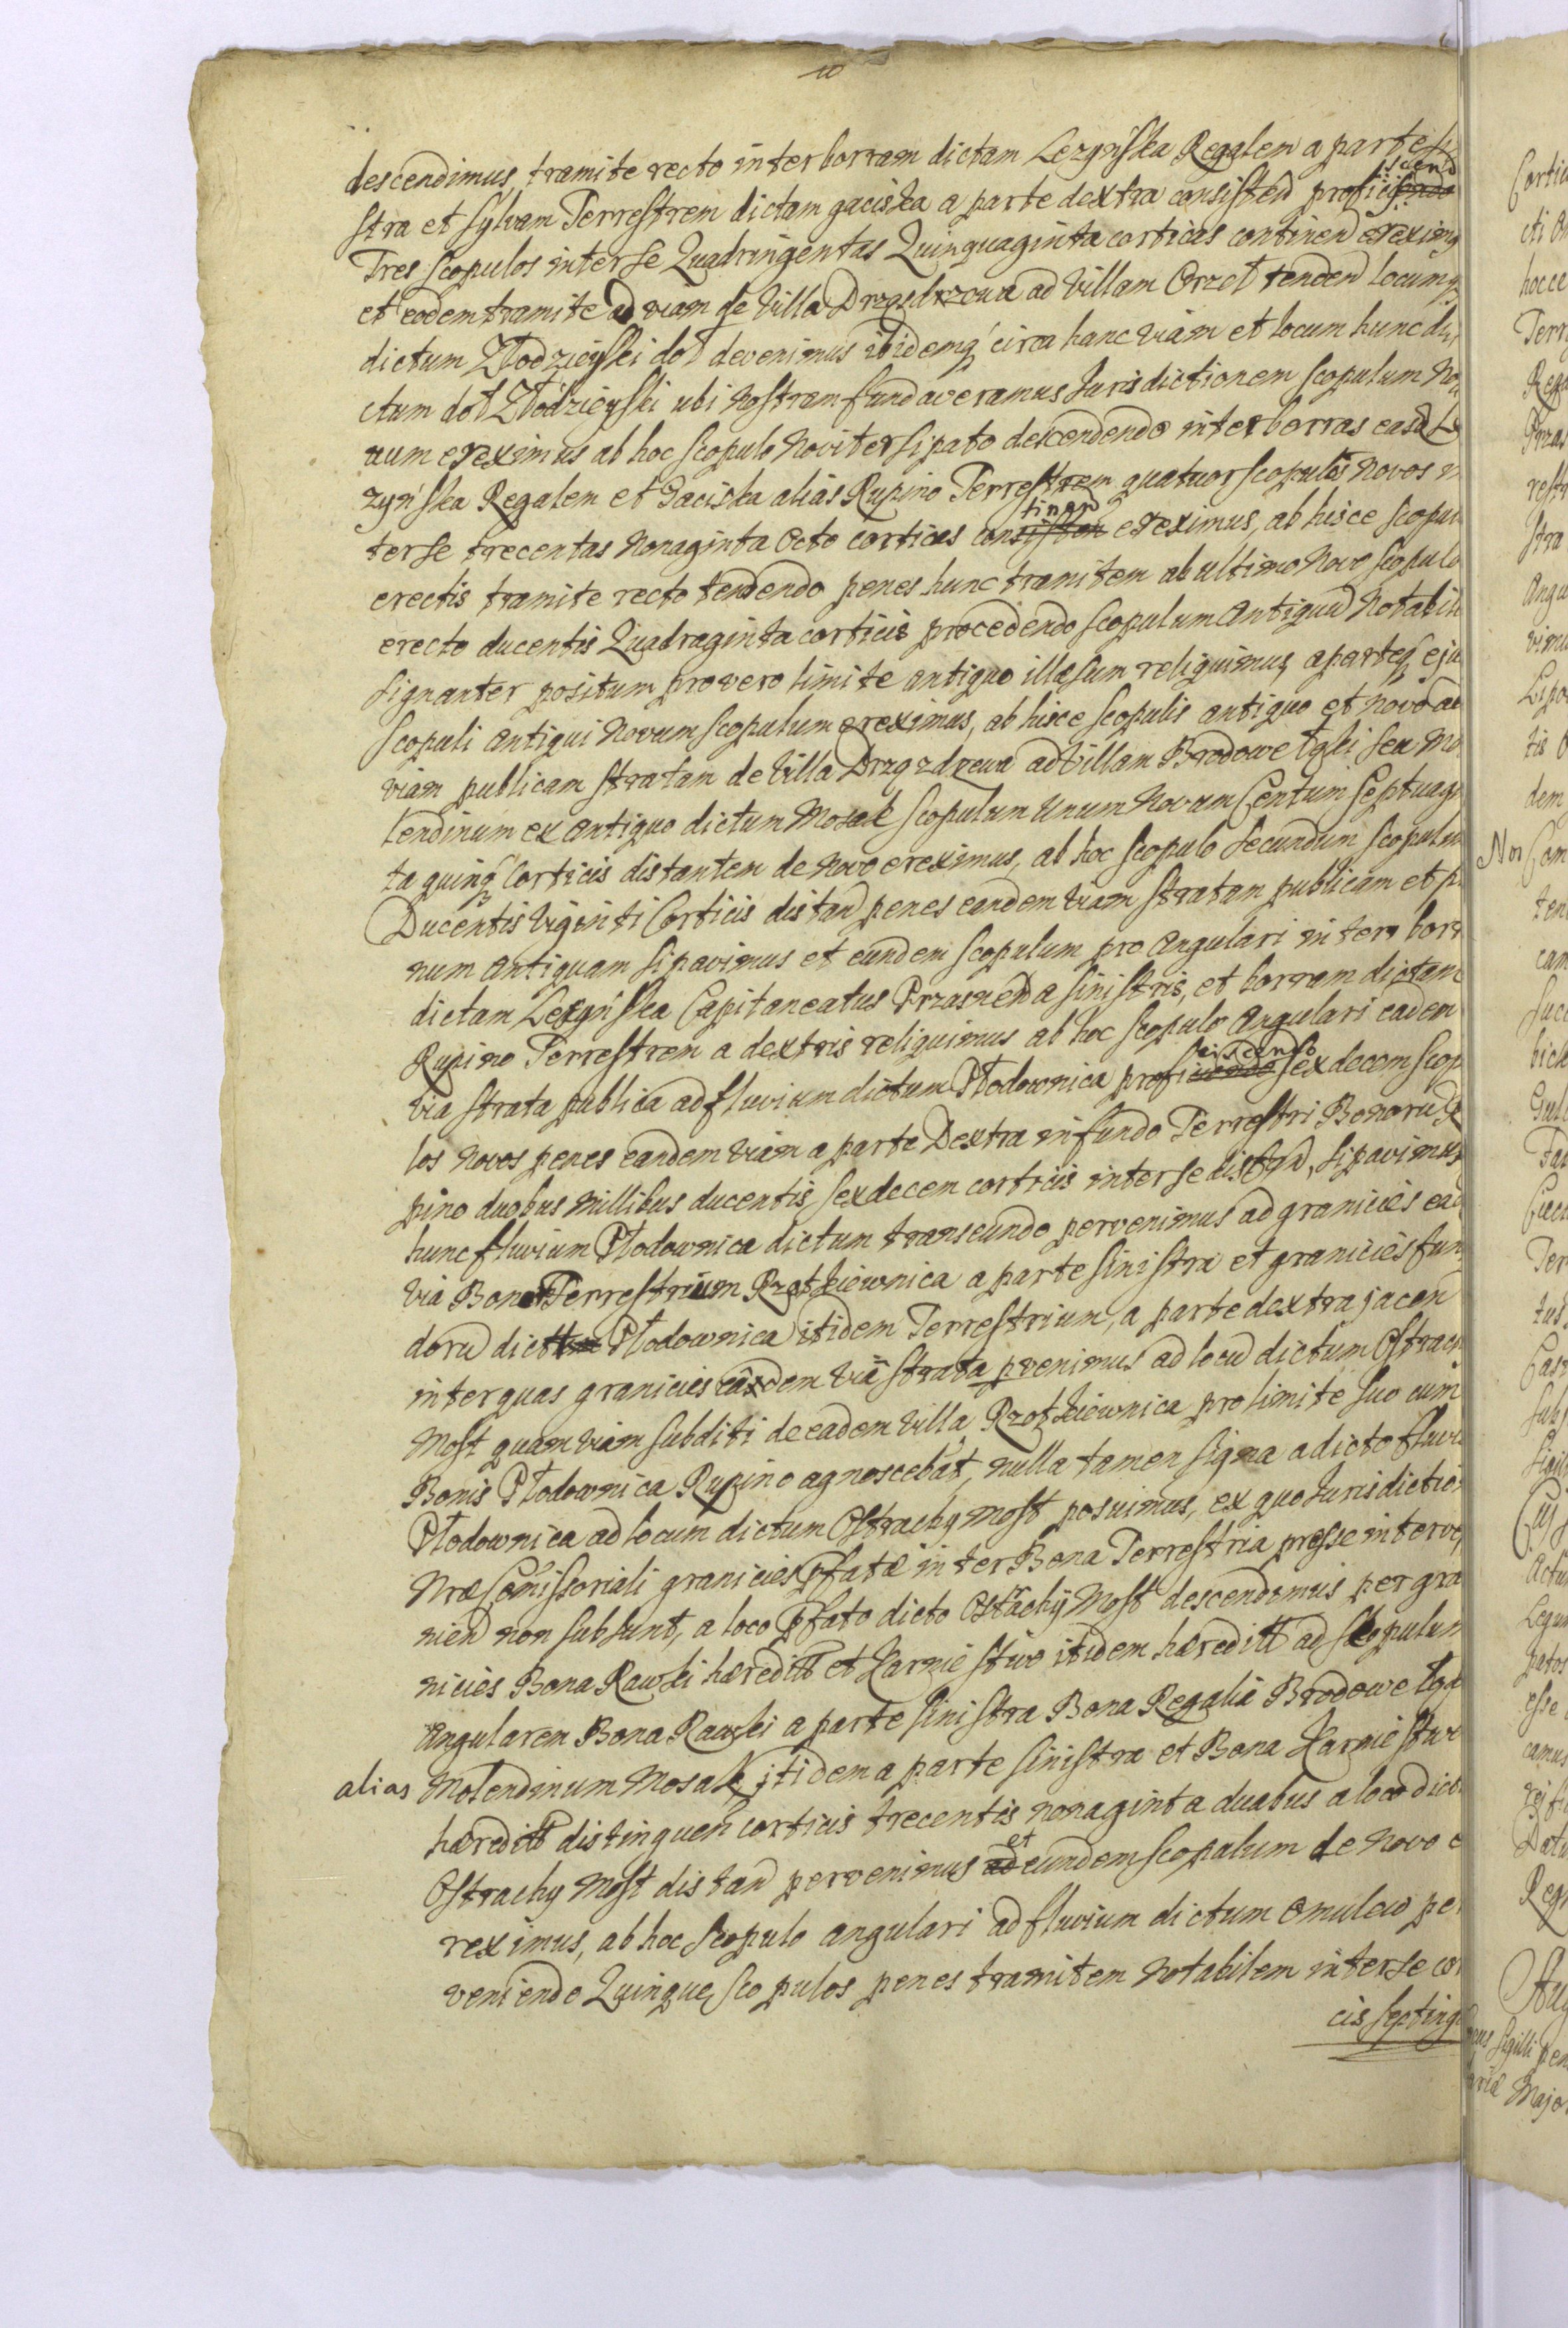 10
descendimus, tramite recto inter borram dictam Lezyńska Regalem a parte si
stra et sylvam Terrestrem dictam gaciska a parte dextra consisteñ proficiscend
Tres scopulos inter se Quadringentas Quinquaginta cortices continen ereximq
et eodem tramite ad viam de Villa Drządrzewa ad Villam Orzoł tenden locumq
dictum Złodzieyski doł devenimus ibidemq circa hanc viam et locum hunc di
ctum doł Złodzieyski ubi Nostram fundaveramus Jurisdictionem scopulum No
vum ereximus ab hoc scopulo Noviter sipato descendendo inter borras easd Le
zyńska Regalem et Gaciska alias Rupino Terrestrem quatuor scopulos Novos in
ter se trecentas Nonaginta Octo cortices continen ereximus, ab hisce scopu
erectis tramite recto tendendo penes hunc tramitem ab ultimo Novo scopulo
erecto ducentis Quadraginta corticis procedendo scopulum Antiquu Notabili
signanter positum pro vero limite antiquo illæsum reliquimus, a parteq eju
scopuli Antiqui Novum scopulum ereximus, ab hisce scopulis antiquo et novo ad
viam publicam stratam de Villa Drzązdzewa ad Villam Brodowe Łąki seu Mo
lendinum ex Antiquo dictum Mosak scopulum unum Novum Centum Septuagi
ta quinq Corticis distantem de Novo ereximus, ab hoc scopulo secundum scopulu
Ducentis Viginti Corticis distan penes eandem viam stratam publicam et pi
num Antiquam sipavimus et eundem scopulum pro Angulari inter borr
dictam Lezyńska Capitaneatus Przasnen a sinistris, et borram dictam
Rupino Terrestrem a dextris reliquimus ab hoc scopulo Angulari eadem
via strata publica ad fluvium dictum Płodownica proficiscendo sexdecem scop
los Novos penes eandem viam a parte Dextra in fundo Terrestri Bonoru
pino duobus millibus ducentis sexdecem corticis inter se distan, sipavimus
hunc fluvium Płodownica dictum transeundo pervenimus ad granicies ead
via Bonor Terrestrium Rzotkiewnica a parte sinistra et granicies fun
doru dict Płodownica itidem Terrestrium, a parte dextra jacen
inter quas granicies easdem via strata pvenimus ad locu dictum Ostrachy
Most quam viam subditi de eadem Villa Rzotkiewnica pro limite suo cum
Bonis Płodownica Rupino agnoscebat, nulla tamen signa a dicto fluvi
Płodownica ad locum dictum Ostrachy Most posuimus, ex quo Jurisdictio
Nræ Comissoriali granicies pfatæ inter Bona Terrestria prosse interve
nien non subsunt, a loco pfato dicto Ostrachy Most descendimus per gra
nicies Bona Rawki hæreditt et Karnie stwo itidem hæreditt ad scopulum
Angularem Bona Rawki a parte sinistra Bona Regalia Brodowe Łąk
alias Molendinum Mosak itidem a parte sinistra et Bona Karnie stwo
hæreditt distinguen corticis trecentis nonaginta duabus a loco dict
Ostrachy Most distan pervenimus et eundem scopulum de Novo e
reximus, ab hoc scopulo angulari ad fluvium dictum Omulew pe
veniendo Quinque scopulos penes tramitem Notabilem inter se cor
cis septing